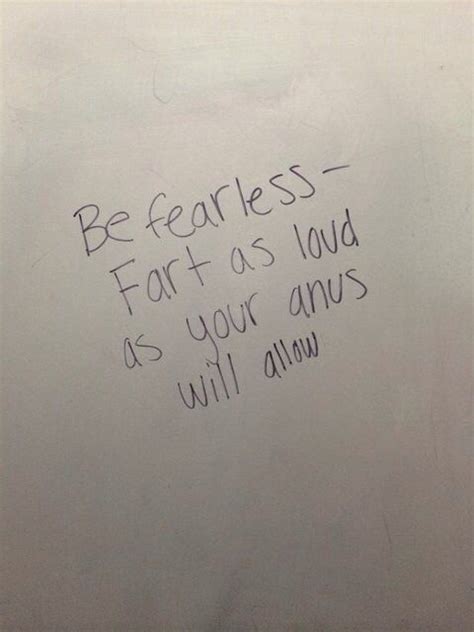 Be fearless-
Fart as loud
as your anus
will allow